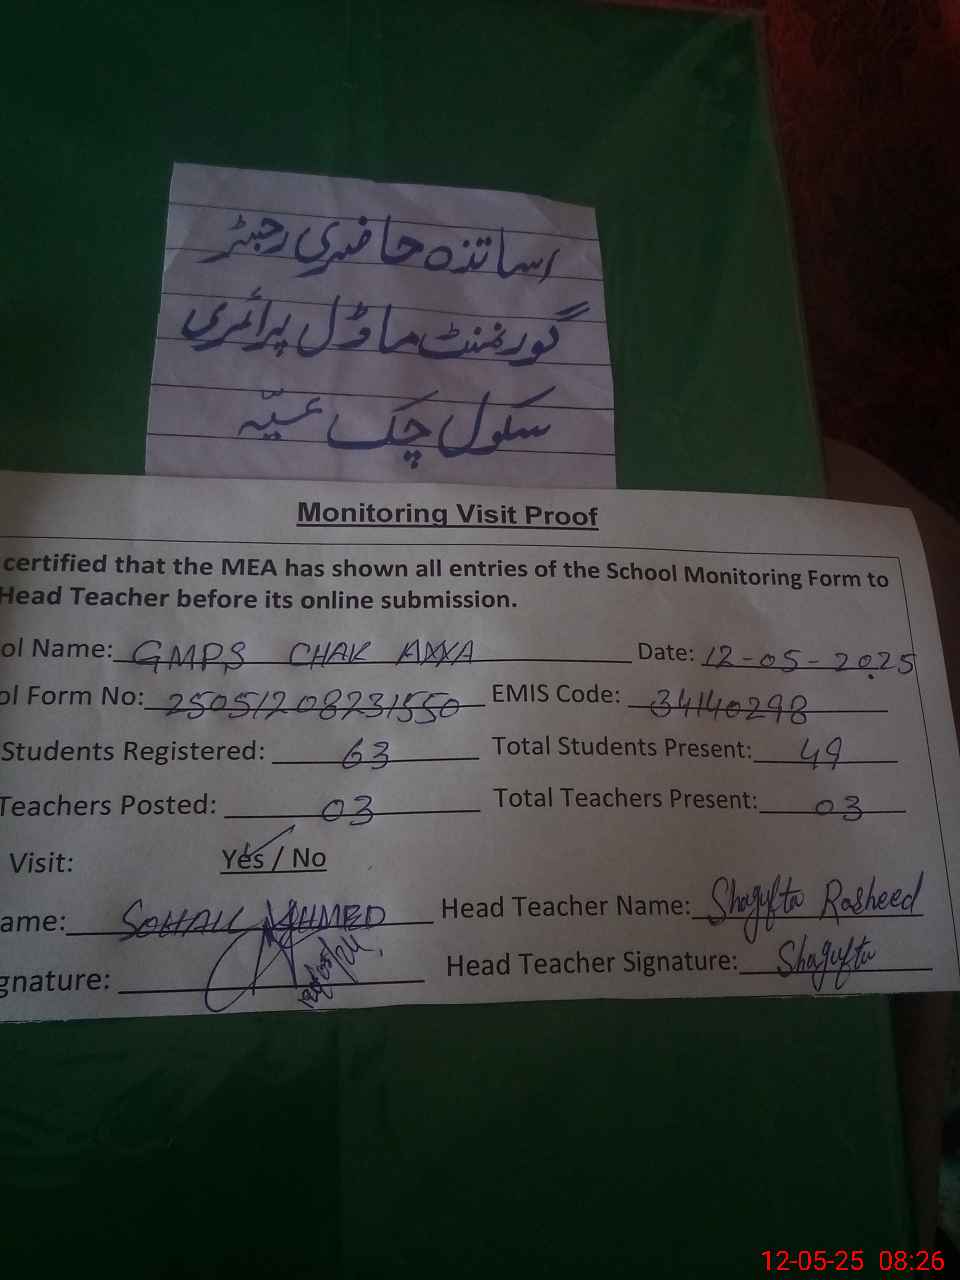 اساتذہ حاضری رجسٹر
گورنمنٹ ماڈل پرائمری
سکول چک عیّہ
Monitoring Visit Proof
certified that the MEA has shown all entries of the School Monitoring Form to
Head Teacher before its online submission.
ol Name: GMPS CHAK AXXA Date: 12-05-2025
ol Form No: 25051208231550 EMIS Code: 34140298
Students Registered: 63 Total Students Present: 49
Teachers Posted: 03 Total Teachers Present: 03
Visit: Yes / No
ame: SOHAIL AHMED Head Teacher Name: Shagufta Rasheed
gnature: Head Teacher Signature: Shagufta
12-05-25 08:26